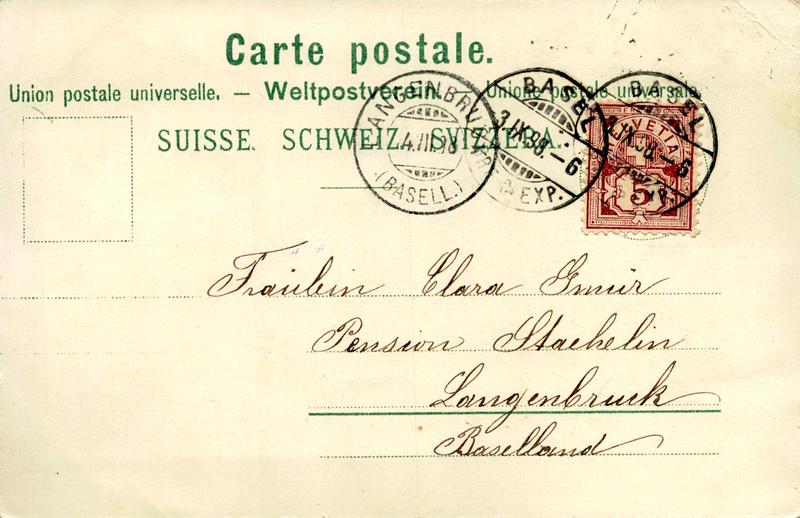 Carte postale.
Union postale universelle. — Weltpostverein — Unione postale universale.
SUISSE. SCHWEIZ. SVIZZERA.
LANGENBRUCK
(BASELL.)
BASEL
3.IX.98.-6
EXP.
BASEL
HELVETIA
5
Fräulein Clara Gmür
Pension Staehelin
Langenbruck
Baselland